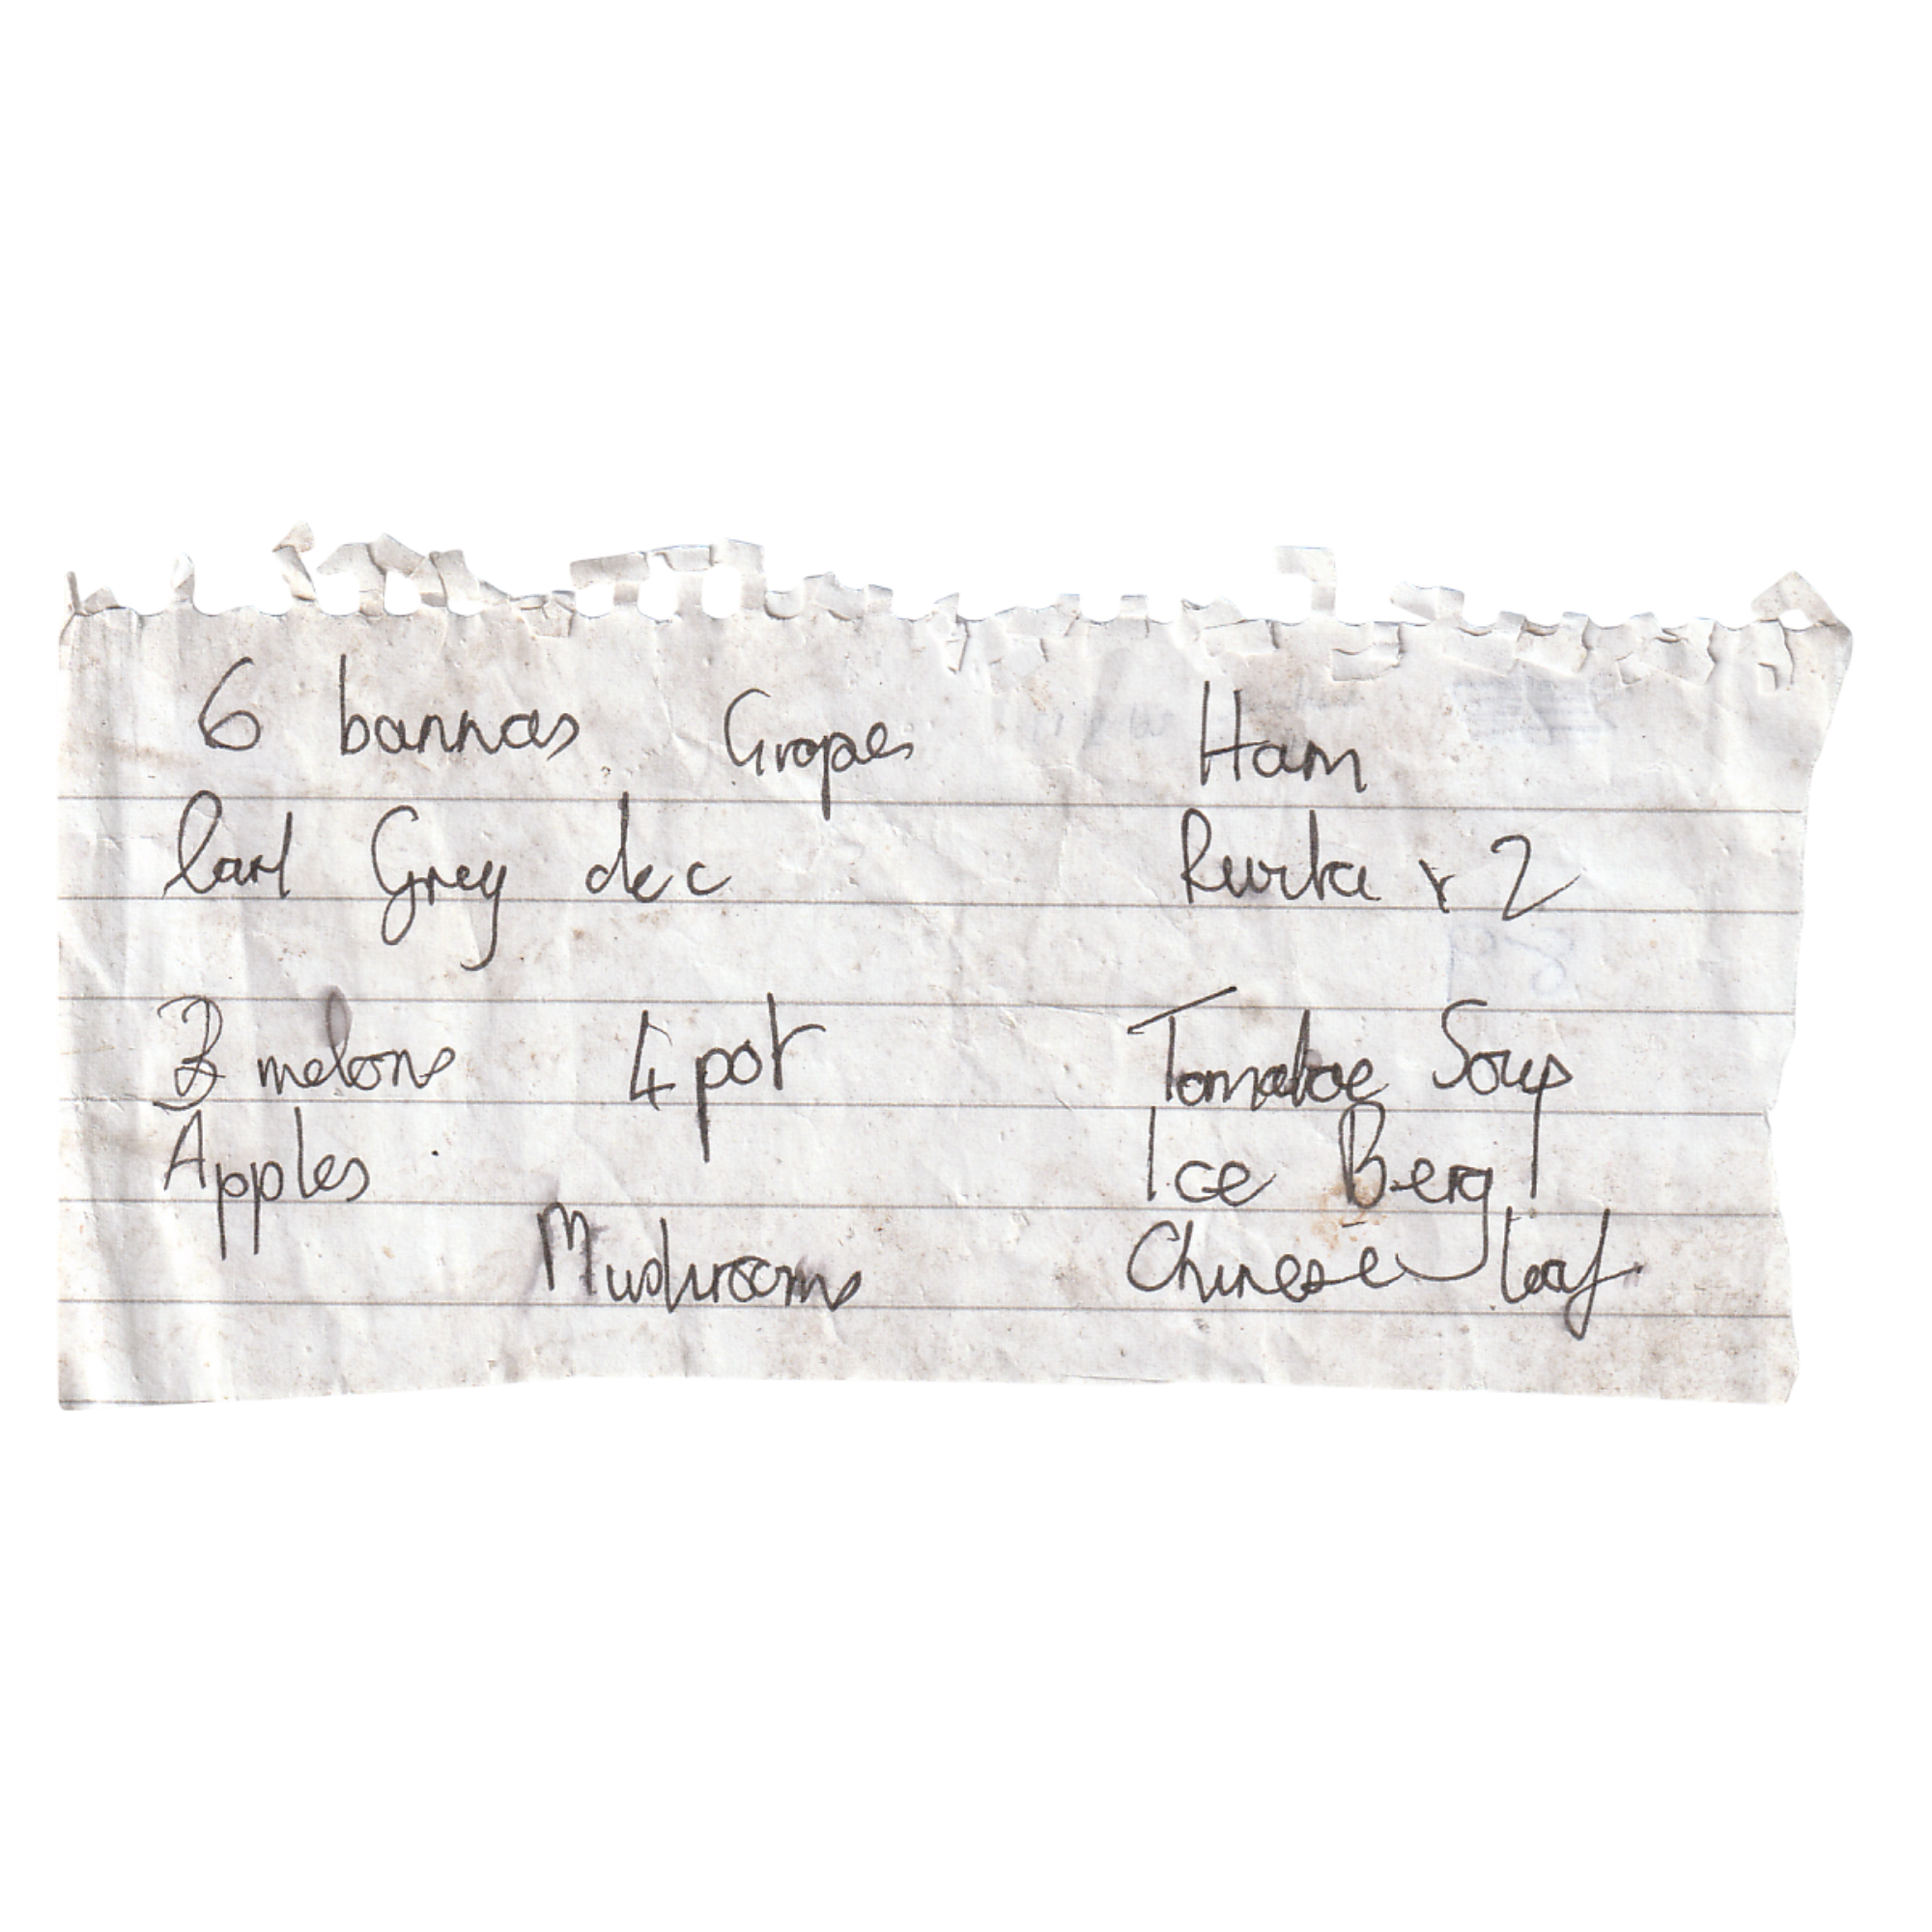 6 bannas Grapes Ham
Earl Grey dec Rivita x 2
melons 4 pot Tomatoe Soup
Apples Ice Berg
Mushrooms Chinese leaf